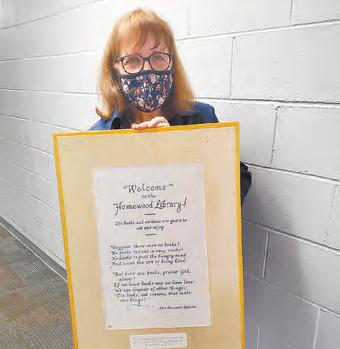 Welcome
to the
Homewood Library!
Its books and services are yours to
use and enjoy
"Suppose there were no books!
No books to read in cozy nooks!
No books to feed the hungry mind
And the art of being kind.
"But here are books, praise God,
above!
If we have books and we have love
We can dispose of other things:
'Tis books, not crowns, that make
men kings!"